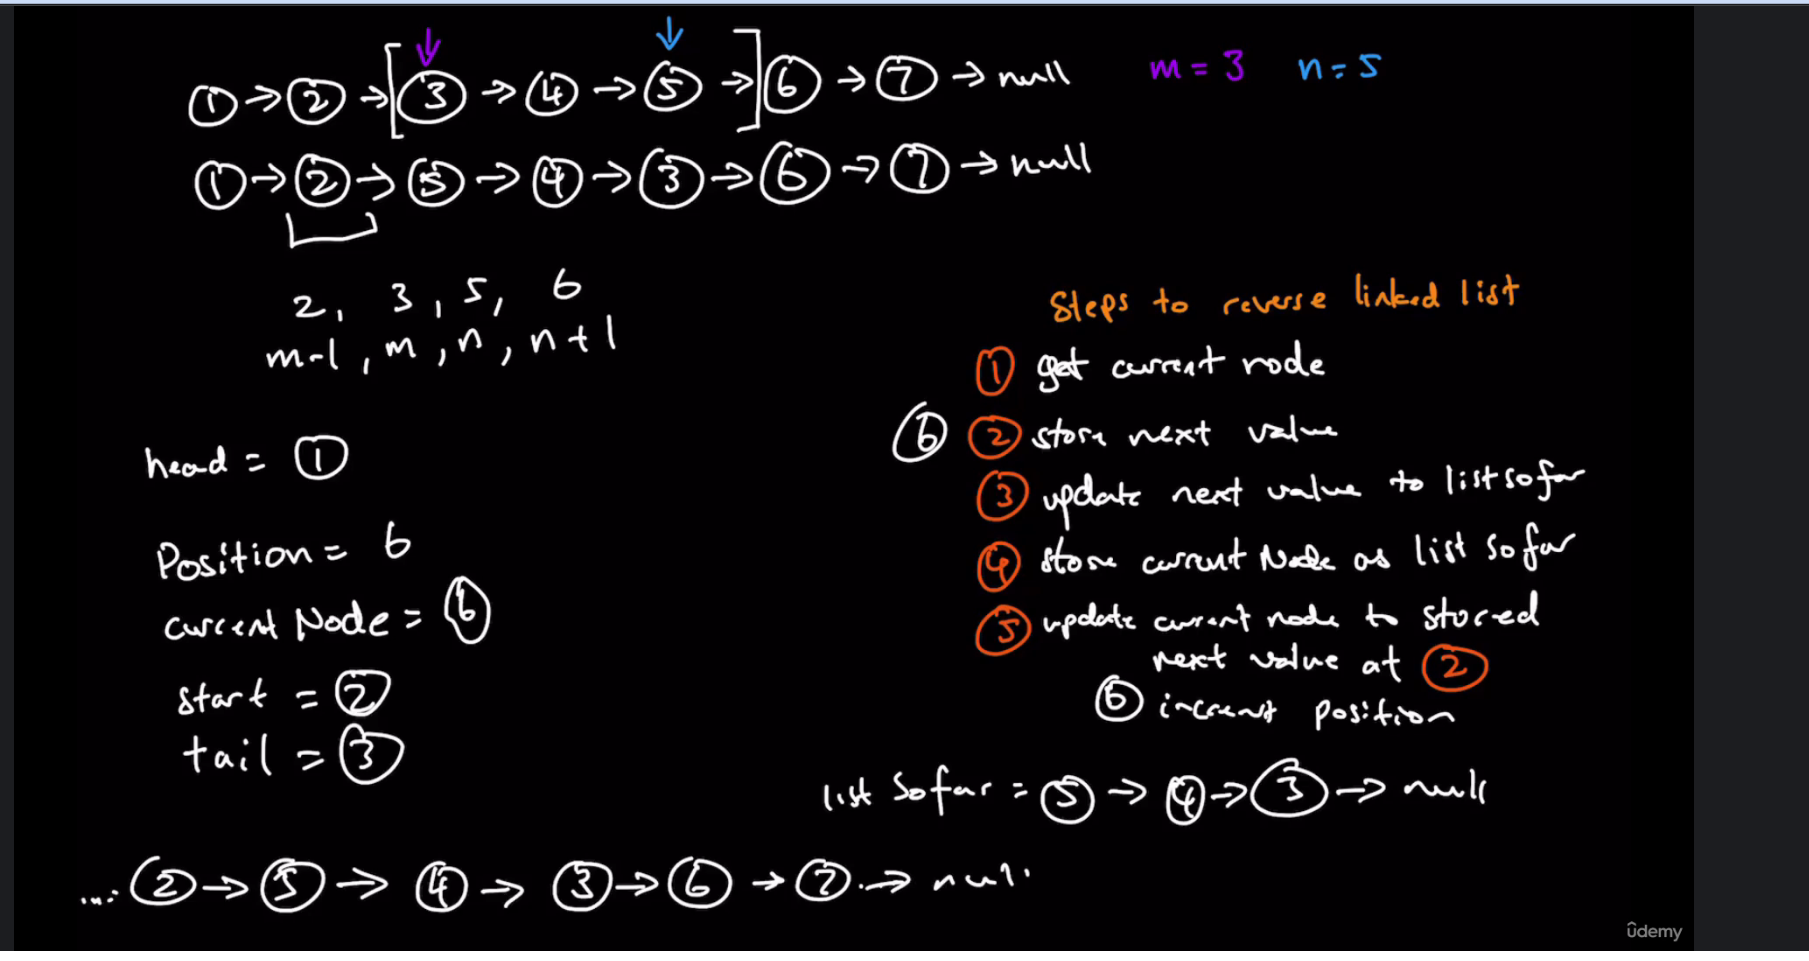 ① → ② → [③ → ④ → ⑤ →] ⑥ → ⑦ → null m = 3 n = 5
① → ② → ⑤ → ④ → ③ → ⑥ → ⑦ → null
2, 3, 5, 6
m-1, m, n, n+1
head = ①
Position = 6
current Node = ⑥
start = ②
tail = ③
Steps to reverse linked list
① get current node
⑥ ② store next value
③ update next value to list so far
④ store current Node as list so far
⑤ update current node to stored
next value at ②
⑥ increment position
list so far = ⑤ → ④ → ③ → null
... ② → ⑤ → ④ → ③ → ⑥ → ⑦ → null
ûdemy